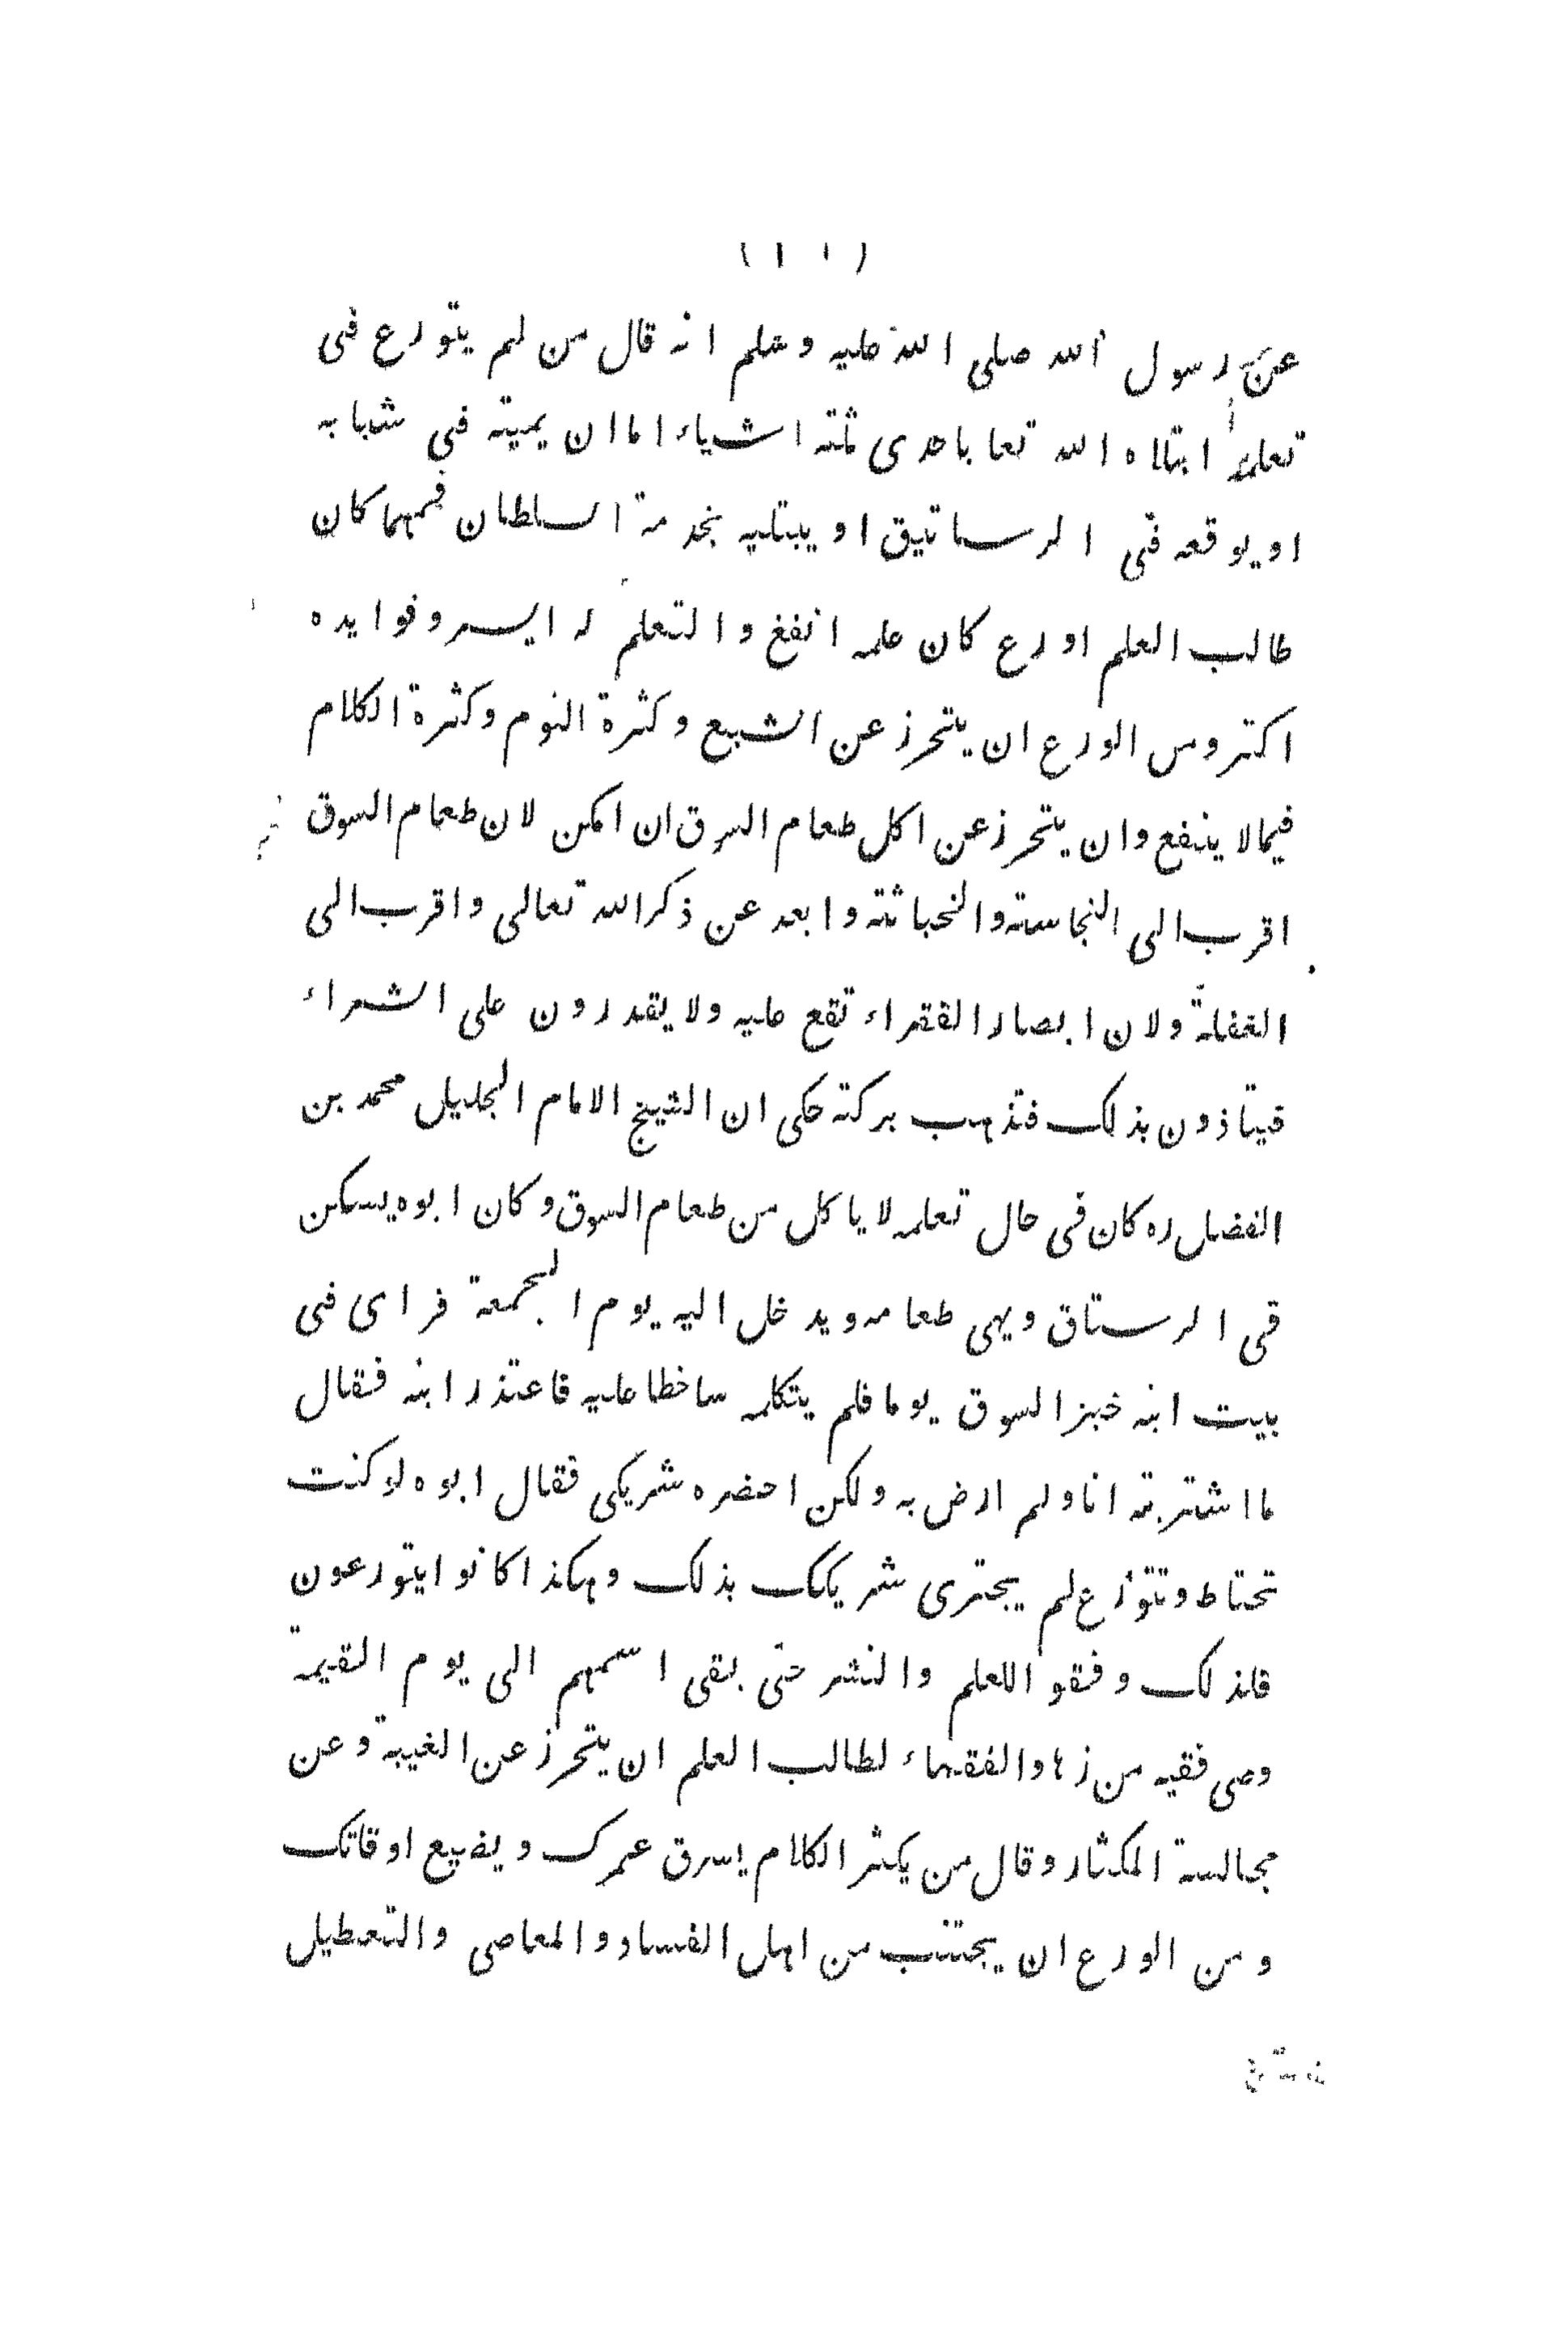 عن رسول الله صلى الله عليه وسلم انه قال من لم يتورع فى
تعلمه ابتلاه الله تعا باحدى ثلثه اشياء اما ان يميته فى شبابه
او يوقعه فى الرساتيق او يبتليه بخدمة السلطان فمهما كان
طالب العلم اورع كان علمه انفغ والتعلم له ايسر وفوايده
اكتر ومن الورع ان يتحرز عن الشبع وكثرة النوم وكثرة الكلام
فيمالا ينفع وان يتحرز عن اكل طعام السوق ان امكن لان طعام السوق
اقرب الى النجاسته والخباثته وابعد عن ذكر الله تعالى واقرب الى
الغفلة ولان ابصار الفقراء تقع عليه ولا يقدرون على الشراء
فيتاذون بذلك فتذهب بركته حكى ان الشيخ الامام الجليل محمد بن
الفضل ره كان فى حال تعلمه لا ياكل من طعام السوق وكان ابوه يسكن
فى الرستاق ويهى طعامه ويدخل اليه يوم الجمعة فراى فى
بيت ابنه خبز السوق يوما فلم يتكلمه ساخطا عليه فاعتذر ابنه فقال
ما اشتريته انا ولم ارض به ولكن احضره شريكى فقال ابوه لو كنت
تحتاط وتتوزع لم يجترى شريكك بذلك وهكذا كانوا يتورعون
فلذلك وفقوا للعلم والنشر حتى بقى اسمهم الى يوم القيمة
وصى فقيه من زهاد الفقهاء لطالب العلم ان يتحرز عن الغيبة وعن
مجالسة المكثار وقال من يكثر الكلام يسرق عمرك ويضيع اوقاتك
ومن الورع ان يجتنب من اهل الفساد والمعاصى والتعطيل